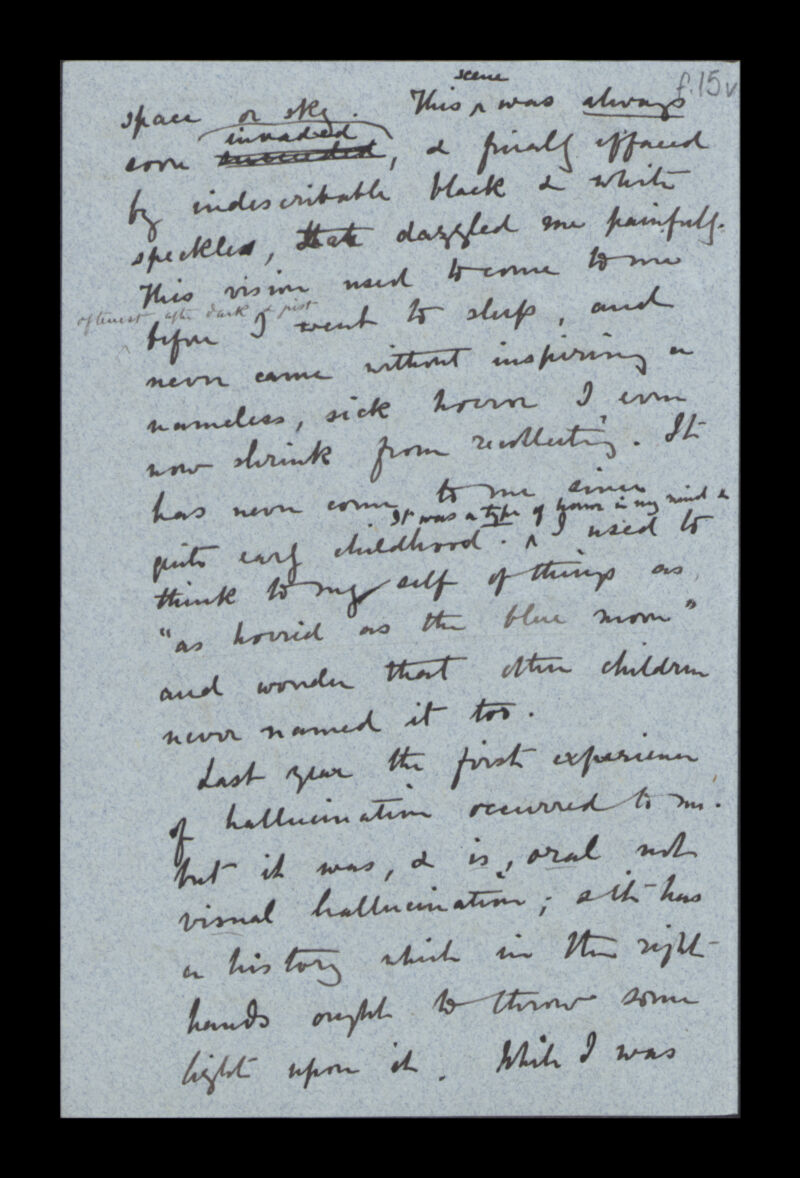 f.15v
scene
space or sky. This ^ was always
invaded
soon succeeded, & finally effaced
by indescribable black & white
speckles, that dazzled me painfully.
This vision used to come to me
oftenest after dark & just
before I went to sleep, and
never came without inspiring a
nameless, sick horror I even
now shrink from recollecting. It
has never come to me since
It was a type of horror in my mind &
quite early childhood. ^ I used to
think to myself of things as
"as horrid as the blue moon"
and wonder that other children
never named it too.
Last year the first experience
of hallucination occurred to me.
but it was, & is, oral not
visual hallucination; & it has
a history which in the right
hands ought to throw some
light upon it. While I was